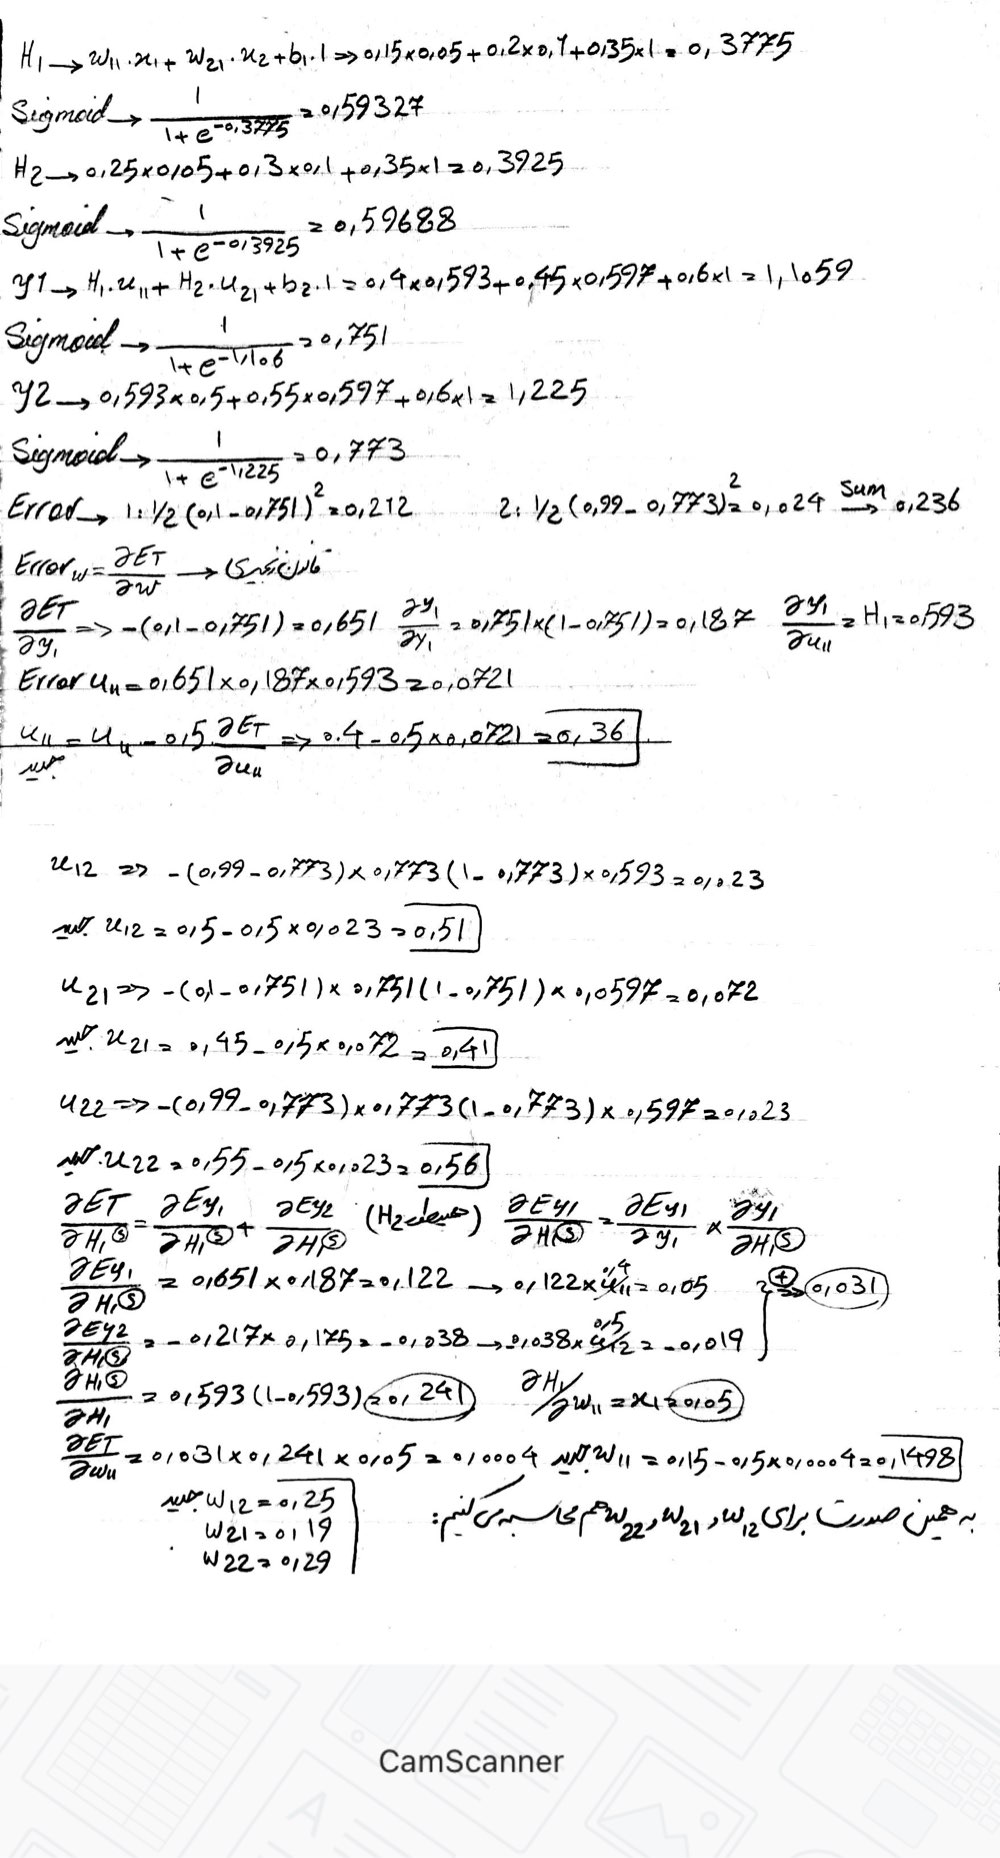 H1 → w11·x1 + w21·x2 + b1·1 => 0,15×0,05+0,2×0,1+0,35×1 = 0,3775
Sigmoid → 1/(1+e^-0,3775) = 0,59327
H2 → 0,25×0,05+0,3×0,1+0,35×1 = 0,3925
Sigmoid → 1/(1+e^-0,3925) = 0,59688
y1 → H1·u11 + H2·u21 + b2·1 = 0,4×0,593+0,45×0,597+0,6×1 = 1,1059
Sigmoid → 1/(1+e^-1,106) = 0,751
y2 → 0,593×0,5+0,55×0,597+0,6×1 = 1,225
Sigmoid → 1/(1+e^-1,225) = 0,773
Error → 1: 1/2(0,1-0,751)^2 = 0,212 2: 1/2(0,99-0,773)^2 = 0,024 Sum → 0,236
Error w = ∂ET/∂w → قانون زنجیری
∂ET/∂y1 => -(0,1-0,751) = 0,651 ∂y1/∂y1 = 0,751×(1-0,751) = 0,187 ∂y1/∂u11 = H1 = 0,593
Error u11 = 0,651×0,187×0,593 = 0,0721
u11 جدید = u11 - 0,5 ∂ET/∂u11 => 0.4-0,5×0,0721 = 0,36
u12 => -(0,99-0,773)×0,773(1-0,773)×0,593 = 0,023
جدید u12 = 0,5-0,5×0,023 = 0,51
u21 => -(0,1-0,751)×0,751(1-0,751)×0,0597 = 0,072
جدید u21 = 0,45-0,5×0,072 = 0,41
u22 => -(0,99-0,773)×0,773(1-0,773)×0,597 = 0,023
جدید u22 = 0,55-0,5×0,023 = 0,56
∂ET/∂H1Ⓢ = ∂Ey1/∂H1Ⓢ + ∂Ey2/∂H1Ⓢ (همینطور H2) ∂Ey1/∂H1Ⓢ = ∂Ey1/∂y1 × ∂y1/∂H1Ⓢ
∂Ey1/∂H1Ⓢ = 0,651×0,187 = 0,122 → 0,122×u11 0,4 = 0,05 ⊕ => 0,031
∂Ey2/∂H1Ⓢ = -0,217×0,175 = -0,038 → -0,038×u12 0,5 = -0,019
∂H1Ⓢ/∂H1 = 0,593(1-0,593) = 0,241 ∂H1/∂w11 = x1 = 0,05
∂ET/∂w11 = 0,031×0,241×0,05 = 0,0004 جدید w11 = 0,15-0,5×0,0004 = 0,1498
به همین صورت برای w12 و w21 و w22 هم محاسبه می کنیم:
جدید w12 = 0,25
w21 = 0,19
w22 = 0,29
CamScanner